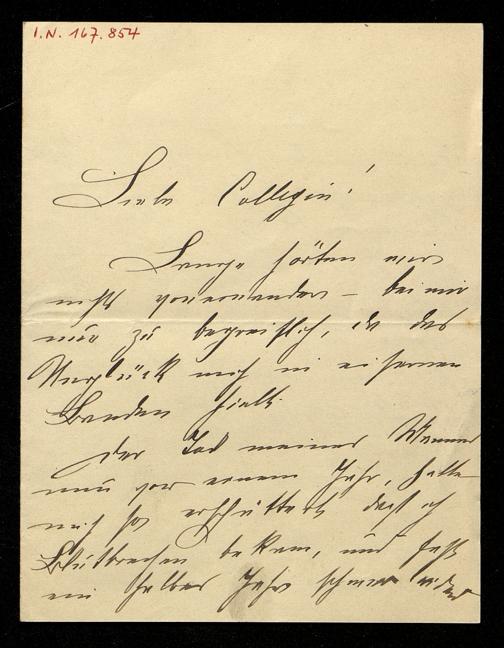 I.N. 167.854
Liebe Collegin!
Lange hörten wir
nichts voneinander – bei mir
nur zu begreiflich, da das
Unglück mich in eisernen
Banden hielt.
Der Tod meines Mannes
nun vor einem Jahr, hatte
mich so erschüttert daß ich
Blutbrechen bekam, und fast
ein halbes Jahr schwer